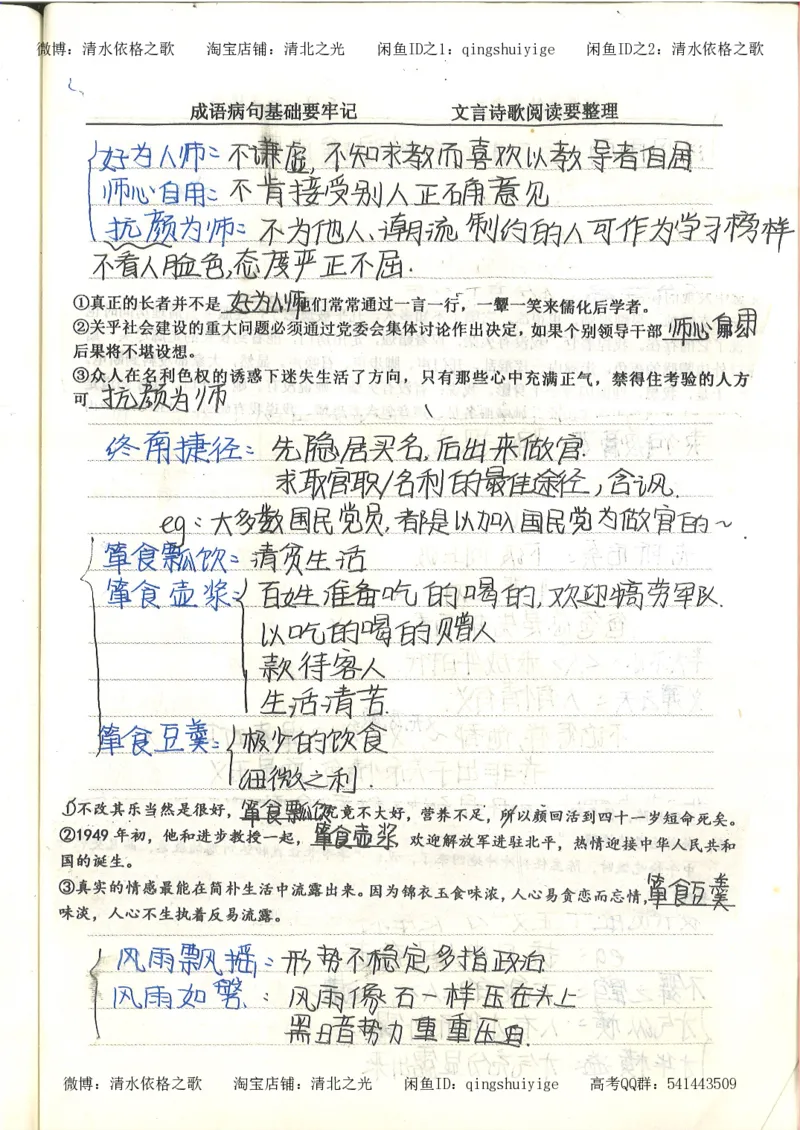 微博：清水依格之歌 淘宝店铺：清北之光 闲鱼ID之1：qingshuiyige 闲鱼ID之2：清水依格之歌
成语病句基础要牢记 文言诗歌阅读要整理
好为人师：不谦虚，不知求教而喜欢以教导者自居
师心自用：不肯接受别人正确意见
抗颜为师：不为他人、潮流制约的人可作为学习榜样
不看人脸色，态度严正不屈．
①真正的长者并不是 好为人师 他们常常通过一言一行，一颦一笑来儒化后学者。
②关乎社会建设的重大问题必须通过党委会集体讨论作出决定，如果个别领导干部 师心自用
后果将不堪设想。
③众人在名利色权的诱惑下迷失生活了方向，只有那些心中充满正气，禁得住考验的人方
可 抗颜为师
终南捷径：先隐居买名，后出来做官．
求取官职/名利的最佳途径，含讽．
eg：大多数国民党员，都是以加入国民党为做官的～．
箪食瓢饮：清贫生活
箪食壶浆：百姓准备吃的喝的，欢迎犒劳军队．
以吃的喝的赠人
款待客人
生活清苦．
箪食豆羹：极少的饮食
细微之利．
①不改其乐当然是很好，箪食瓢饮究竟不大好，营养不足，所以颜回活到四十一岁短命死矣。
②1949年初，他和进步教授一起，箪食壶浆，欢迎解放军进驻北平，热情迎接中华人民共和
国的诞生。
③真实的情感最能在简朴生活中流露出来。因为锦衣玉食味浓，人心易贪恋而忘情，箪食豆羹
味淡，人心不生执着反易流露。
风雨飘摇：形势不稳定多指政治
风雨如磐：风雨像石一样压在头上
黑暗势力重重压迫．
微博：清水依格之歌 淘宝店铺：清北之光 闲鱼ID：qingshuiyige 高考QQ群：541443509